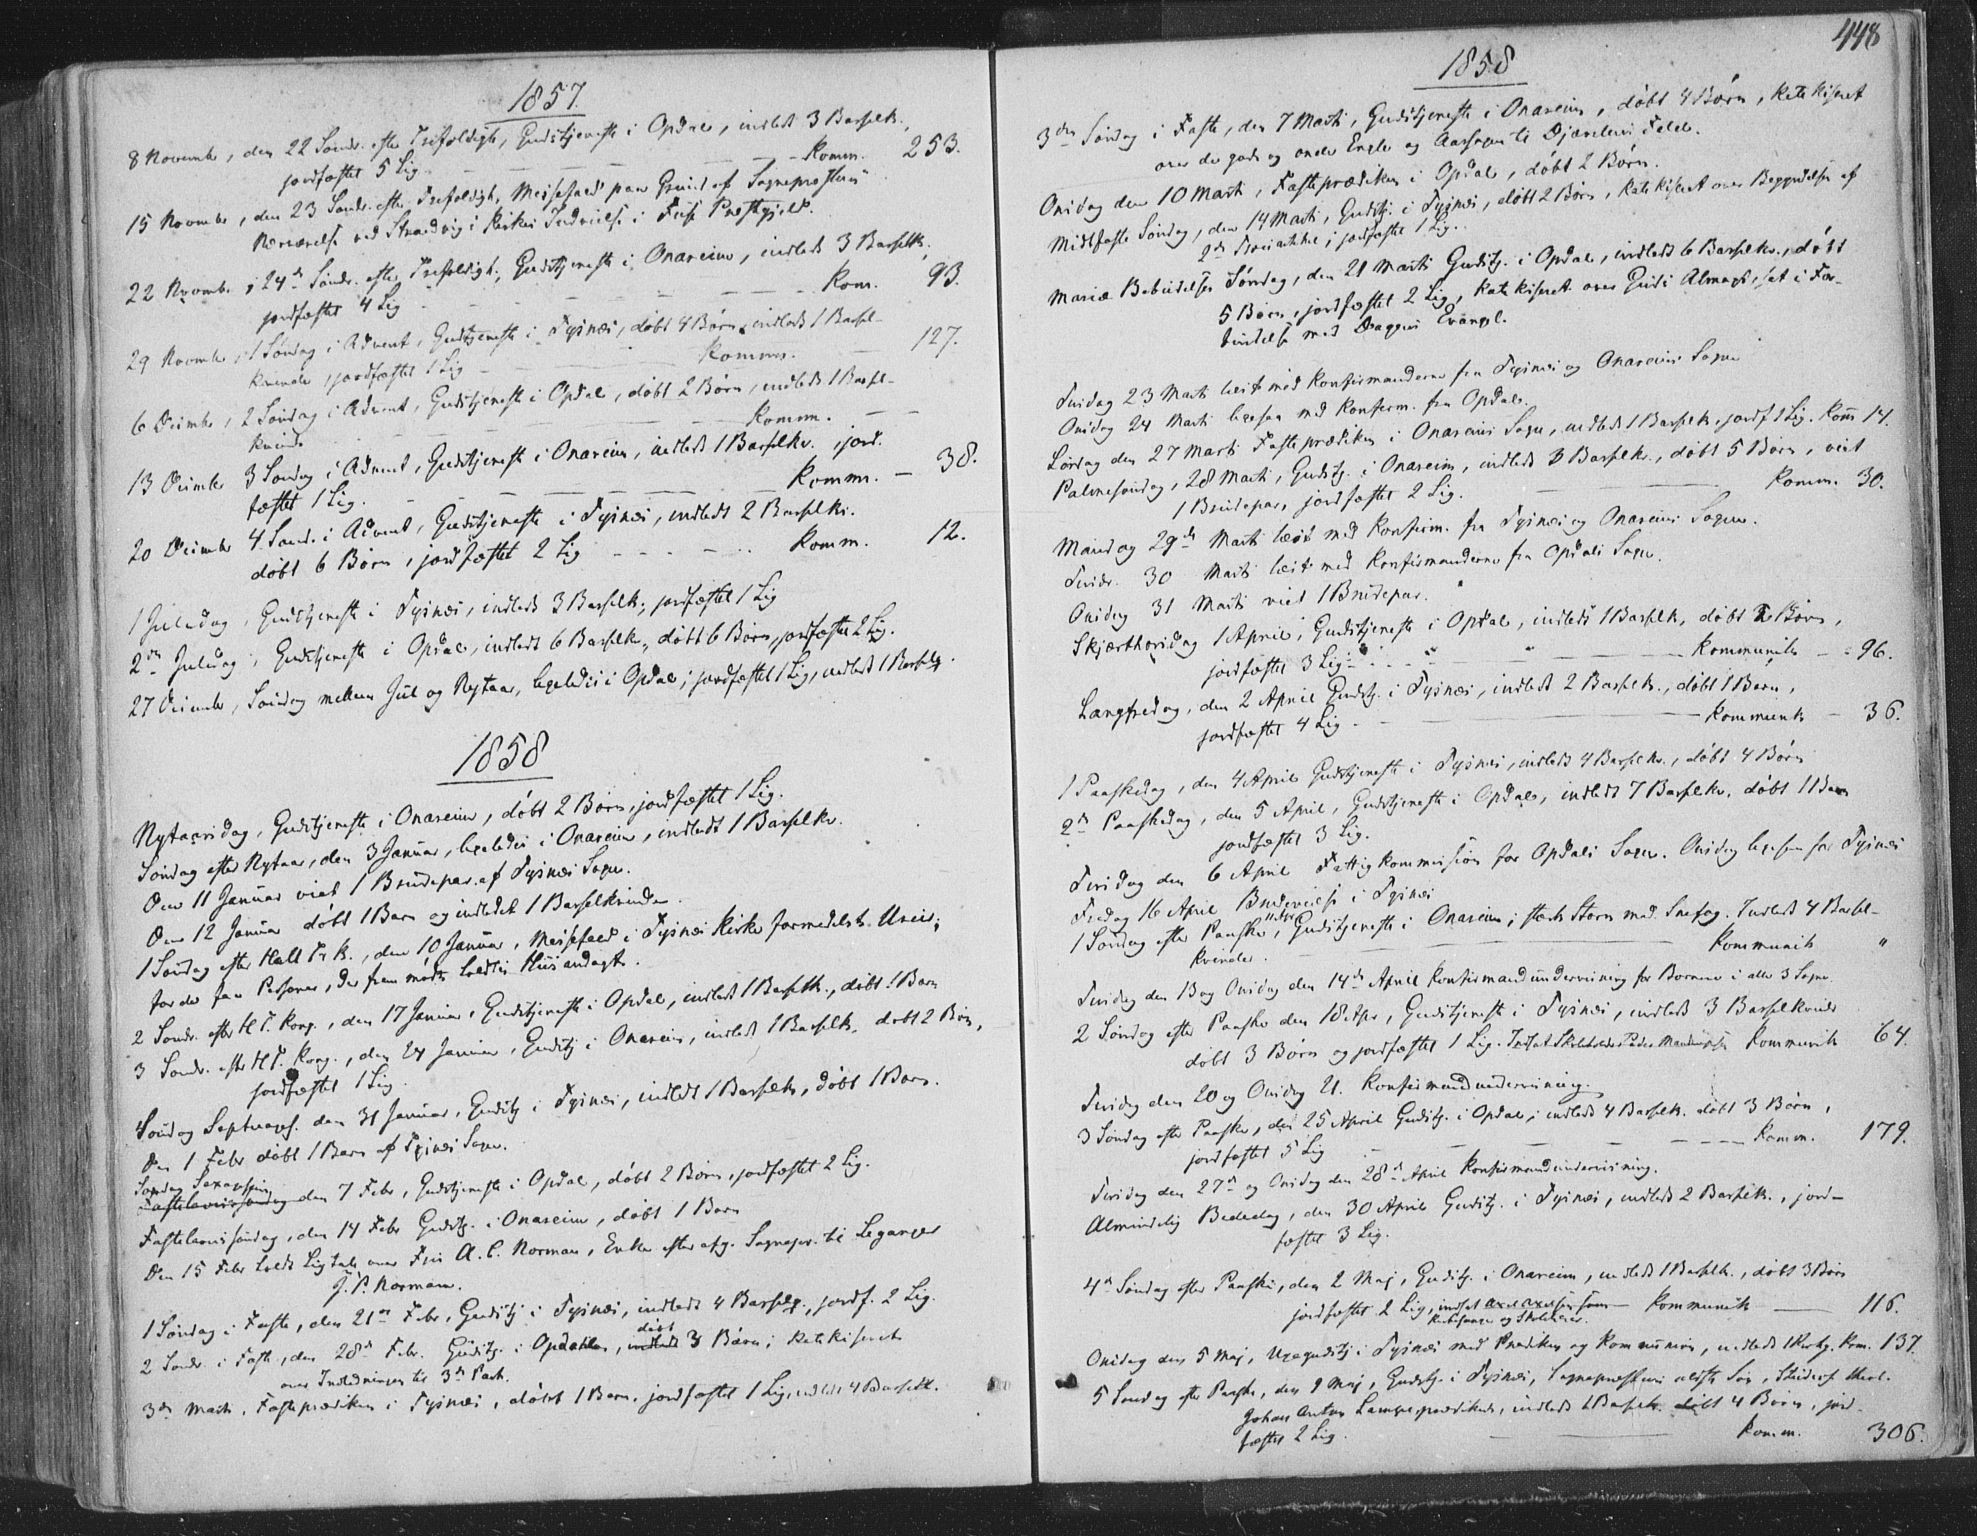 1857
8 Novembr, den 22 Sønd. efter Trefoldigh, Gudstjeneste i Opdal, indledt 3 Barselk.,
jordfæstet 5 Lig - - - - Komm. 253.
15 Novembr, den 23 Sønd. efter Trefoldigh, Messefald paa Grund af Sognepræstens
Nærværelse ved Strandvigs Kirkes Indvielse i Fuse Præstgjeld.
22 Novembr, 24de Sønd. efter Trefoldigh, Gudstjeneste i Onareim, indledt 3 Barselk,
jordfæstet 4 Lig - - - - Kom. 93.
29 Novembr, 1 Søndag i Advent, Gudstjeneste i Tysnæs, døbt 4 Børn, indledt 1 Barsel-
kvinde, jordfæstet 1 Lig - - - Komm. - 127.
6 Decembr, 2 Søndag i Advent, Gudstjeneste i Opdal, døbt 2 Børn, indledt 1 Barsel-
kvinde - - - - Komm. - -
13 Decembr 3 Søndag i Advent, Gudstjeneste i Onareim, indledt 1 Barselkv., jord-
fæstet 1 Lig. - - - - Komm. - 38.
20 Decembr 4 Sønd. i Advent, Gudstjeneste i Tysnæs, indledt 2 Barselkv.
døbt 6 Børn, jordfæstet 2 Lig - - - - Komm. 12.
1 Juledag, Gudstjeneste i Tysnæs, indledt 3 Barselk, jordfæstet 1 Lig
2den Juledag, Gudstjeneste i Opdal, indledt 6 Barselk., døbt 6 Børn, jordfæstet 2 Lig.
27 Decembr, Søndag mellem Jul og Nytaar, i Opdal, jordfæstet 1 Lig, indledt 1 Barselq.
1858
Nytaarsdag, Gudstjeneste i Onareim, døbt 2 Børn, jordfæstet 1 Lig.
Søndag efter Nytaar, den 3 Januar, i Onareim, indledt 1 Barselkv.
Den 11 Januar viet 1 Brudepar af Tysnæs Sogn.
Den 12 Januar døbt 1 Barn og indledet 1 Barselkvinde.
1 Søndag efter Hell Tr K., den 10 Januar, Messefald i Tysnæs Kirke formedelst Uveir;
for de faa Personer, der frem mødte holdtes Husandagt.
2 Sønd. efter H T. Kong., den 17 Januar, Gudstjeneste i Opdal, indledt 1 Barselk., døbt 1 Barn
3 Sønd. efter H T. Kong., den 24 Januar, Gudstj i Onareim, indledt 1 Barselk. døbt 2 Børn,
jordfæstet 1 Lig.
Søndag Septuages. den 31 Januar, Gudstj i Tysnæs, indledt 1 Barselk, døbt 1 Barn.
Den 1 Febr døbt 1 Barn af Tysnæs Sogn.
Søndag Sexagesima
Fastelavnssøndag den 7 Febr, Gudstjeneste i Opdal, døbt 2 Børn, jordfæstet 2 Lig.
Fastelavnssøndag, den 14 Febr Gudstj. i Onareim, døbt 1 Barn
Den 15 Febr holdt Ligtale over Fru A. C. Norman, Enke efter afg. Sognepr. til Leganger
J. P. Norman.
1 Søndag i Faste, den 21de Febr, Gudstj i Tysnæs, indledt 4 Barselq., jordf. 2 Lig.
2 Sønd. i Faste, den 28de Febr. Gudstj. i Opdahl, indledt døbt 3 Børn; katekiseret
over Indledningen til 3de Part.
3de Marts, Fasteprædiken i Tysnæs, døbt 1 Barn, jordfæstet 1 Lig, indledt 4 Barselk.
448
1858
3die Søndag i Faste, den 7 Marts, Gudstjeneste i Onareim, døbt 4 Børn, katekiseret
over de gode og onde Engle og Aarsagen til Djævelens Feld.
Onsdag den 10 Marts, Fasteprædiken i Opdal, døbt 2 Børn.
Midtfaste Søndag, den 14 Marts, Gudstj. i Tysnæs, døbt 2 Børn, katekiseret over Begyndelsen af
2den Troesartikel; jordfæstet 1 Lig.
Mariæ Bebudelses Søndag, den 21 Marts Gudstj. i Opdal, indledt 6 Barselkv., døbt
5 Børn, jordfæstet 2 Lig, katekiseret over Guds Almagt, sat i For-
bindelse med Dagens Evangel.
Tirsdag 23 Marts læst med Konfirmanderne fra Tysnæs og Onareims Sogne
Onsdag 24 Marts ligesaa med Konfirm. fra Opdal.
Lørdag den 27 Marts Fasteprædiken i Onareims Sogn, indledt 1 Barselk, jordf 1 Lig. Kom 14.
Palmesøndag, 28 Marts, Gudstj. i Onareim, indledt 3 Barselk., døbt 5 Børn, viet
1 Brudepar, jordfæstet 2 Lig. - - Komm. 30.
Mandag 29de Marts læst med Konfirm. fra Tysnæs og Onareims Sogne.
Tirsd. 30 Marts læst med Konfirmanderne fra Opdals Sogn.
Onsdag 31 Marts viet 1 Brudepar.
Skjærthorsdag 1 April, Gudstjeneste i Opdal, indledt 1 Barselk, døbt 2 Børn,
jordfæstet 3 Lig - - Kommunik - 96.
Langfredag, den 2 April Gudstj. i Tysnæs, indledt 2 Barselk., døbt 1 Barn,
jordfæstet 4 Lig. - - Kommunik - 36.
1 Paaskedag, den 4 April Gudstjeneste i Tysnæs, indledt 4 Barselkv., døbt 4 Børn
2de Paaskedag, den 5 April, Gudstjeneste i Opdal, indledt 7 Barselkv. døbt 1 Barn
jordfæstet 3 Lig.
Tirsdag den 6 April Fattigkommission for Opdals Sogn. Onsdag ligesaa for Tysnæs
Fredag 16 April Brudevielse i Tysnæs
1 Søndag efter Paaske, Gudstjeneste i Onareim; stærk Storm med Snefog. Indledt 4 Barsel-
kvinder. - - Kommunik "
Tirsdag den 13 og Onsdag den 14de April Konfirmandundervisning for Børnene i alle 3 Sogne.
2 Søndag efter Paaske den 18 Apr, Gudstjeneste i Tysnæs, indledt 3 Barselkvinder
døbt 3 Børn og jordfæstet 1 Lig. Indsat Skoleholder Peder Kommunik 64.
Tirsdag den 20 og Onsdag 21. Konfirmandundervisning.
3 Søndag efter Paaske, den 25 April Gudstj. i Opdal, indledt 4 Barselk. døbt 3 Børn,
jordfæstet 5 Lig - - - Komm. 179.
Tirsdag den 27de og Onsdag den 28de April Konfirmandundervisning.
Almindelig Bededag, den 30 April Gudstj. i Tysnæs, indledt 2 Barselk., jord-
fæstet 3 Lig.
4de Søndag efter Paaske, den 2 Maj, Gudstj. i Onareim, indledt 1 Barselk., døbt 3 Børn
jordfæstet 2 Lig, indsat som Kommunik - 116.
Kirkesanger og Skolelærer.
Onsdag den 5 Maj, Ugegudstj i Tysnæs med Prædiken og Kommunion, indledt 1 Kom. 137.
5 Søndag efter Paaske, den 9 Maj, Gudstj. i Tysnæs, Sognepræstens ældste Søn, Student theol.
Johan Anton Lampe, prædikede, indledt 1 Barselk. døbt 4 Børn, jord-
fæstet 2 Lig. - - Komm. 306.